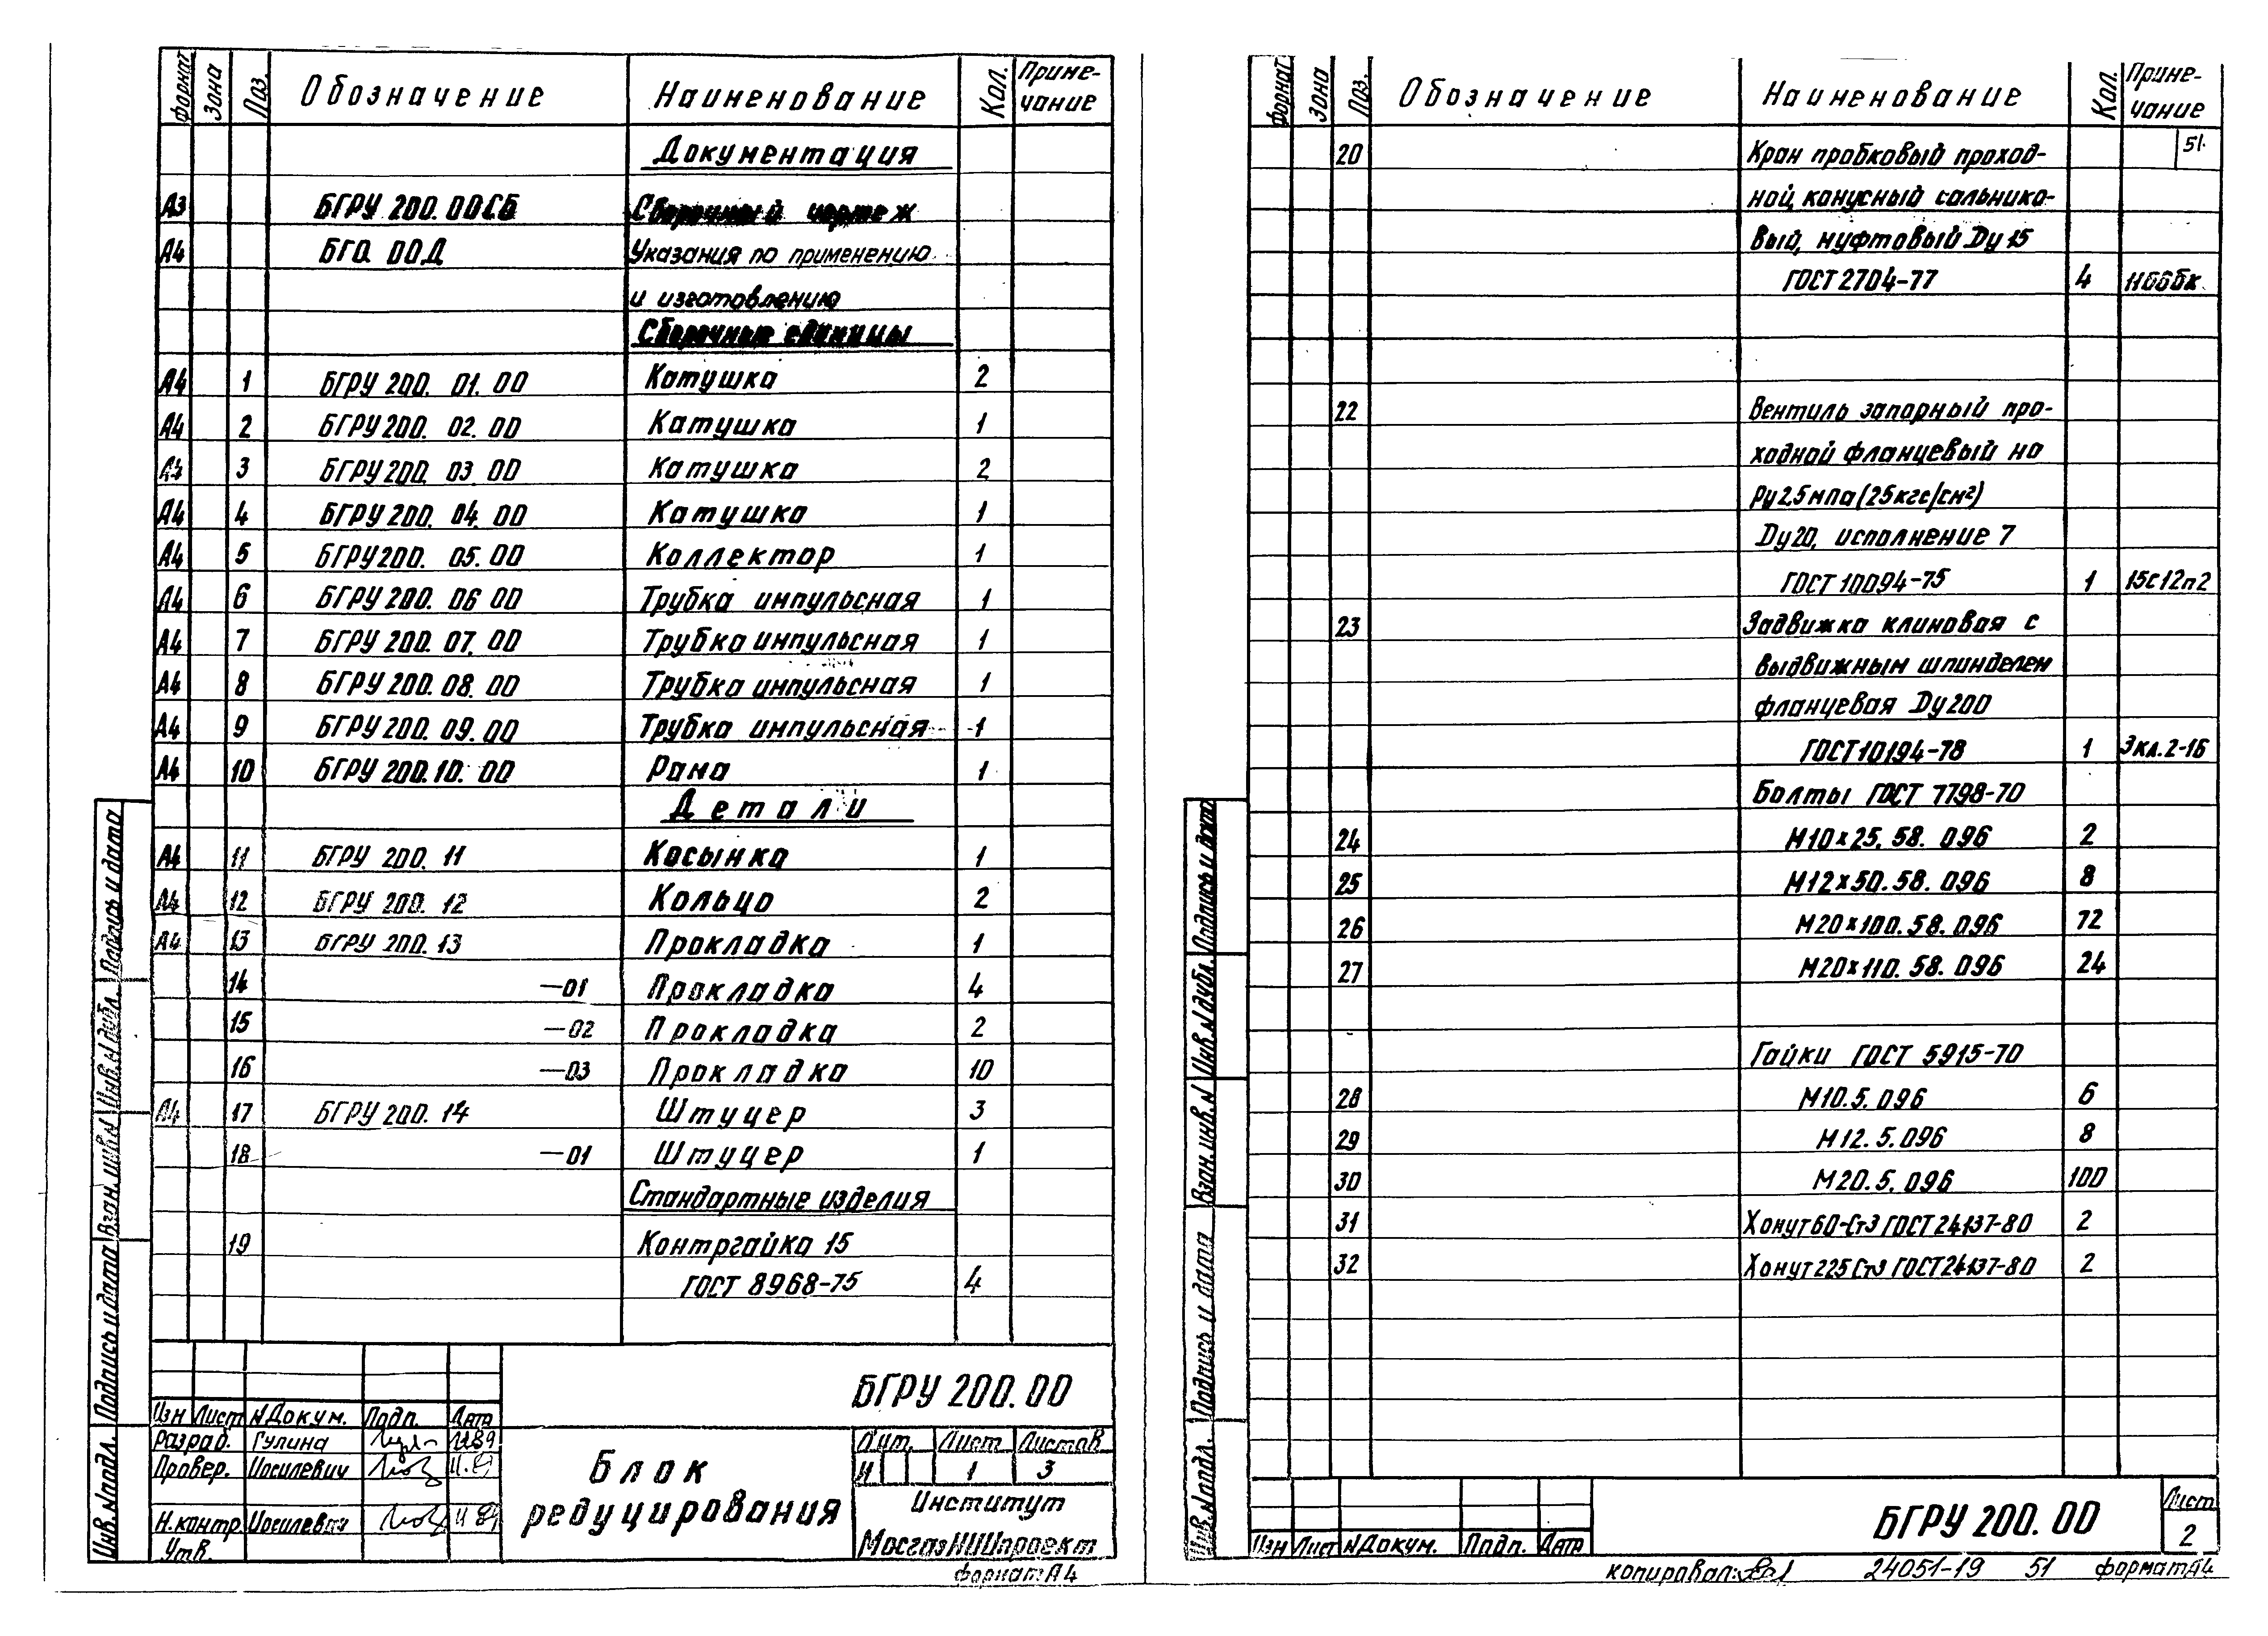 Формат Зона Поз. Обозначение Наименование Кол. Приме-
чание
Документация
А3 БГРУ 200.00СБ Сборочный чертеж
А4 БГО.00Д Указания по применению
и изготовлению
Сборочные единицы
А4 1 БГРУ 200.01.00 Катушка 2
А4 2 БГРУ 200.02.00 Катушка 1
А4 3 БГРУ 200.03.00 Катушка 2
А4 4 БГРУ 200.04.00 Катушка 1
А4 5 БГРУ 200.05.00 Коллектор 1
А4 6 БГРУ 200.06.00 Трубка импульсная 1
А4 7 БГРУ 200.07.00 Трубка импульсная 1
А4 8 БГРУ 200.08.00 Трубка импульсная 1
А4 9 БГРУ 200.09.00 Трубка импульсная 1
А4 10 БГРУ 200.10.00 Рама 1
Детали
А4 11 БГРУ 200.11 Косынка 1
А4 12 БГРУ 200.12 Кольцо 2
А4 13 БГРУ 200.13 Прокладка 1
14 —01 Прокладка 4
15 —02 Прокладка 2
16 —03 Прокладка 10
А4 17 БГРУ 200.14 Штуцер 3
18 —01 Штуцер 1
Стандартные изделия
19 Контргайка 15
ГОСТ 8968-75 4
Подпись и дата
Инв.N дубл.
Взам.инв.N
Подпись и дата
Инв.N подл.
БГРУ 200.00
Изм Лист N Докум. Подп. Дата
Разраб. Гулина 11.89
Провер. Иосилевич
Н.контр. Иосилевич
Утв.
Блок
редуцирования
Лит. Лист Листов
И 1 3
Институт
МосгазНИИпроект
формат А4
Формат Зона Поз. Обозначение Наименование Кол. Приме-
чание
51.
20 Кран пробковый проход-
ной, конусный сальнико-
вый, муфтовый Dу 15
ГОСТ 2704-77 4 11б6бк
22 Вентиль запорный про-
ходной фланцевый на
Ру 2.5 мпа (25кгс/см²)
Dу20, исполнение 7
ГОСТ 10094-75 1 15с12п2
23 Задвижка клиновая с
выдвижным шпинделем
фланцевая Dу200
ГОСТ 10194-78 1 Зкл.2-16
Болты ГОСТ 7798-70
24 М10х25.58.096 2
25 М12х50.58.096 8
26 М20х100.58.096 72
27 М20х110.58.096 24
Гайки ГОСТ 5915-70
28 М10.5.096 6
29 М12.5.096 8
30 М20.5.096 100
31 Хомут 60-Ст3 ГОСТ 24137-80 2
32 Хомут 225 Ст3 ГОСТ 24137-80 2
Подпись и дата
Инв.N дубл.
Взам.инв.N
Подпись и дата
Инв.N подл.
Изм Лист N Докум. Подп. Дата
БГРУ 200.00
Лист
2
копировал: 24051-19 51 формат А4